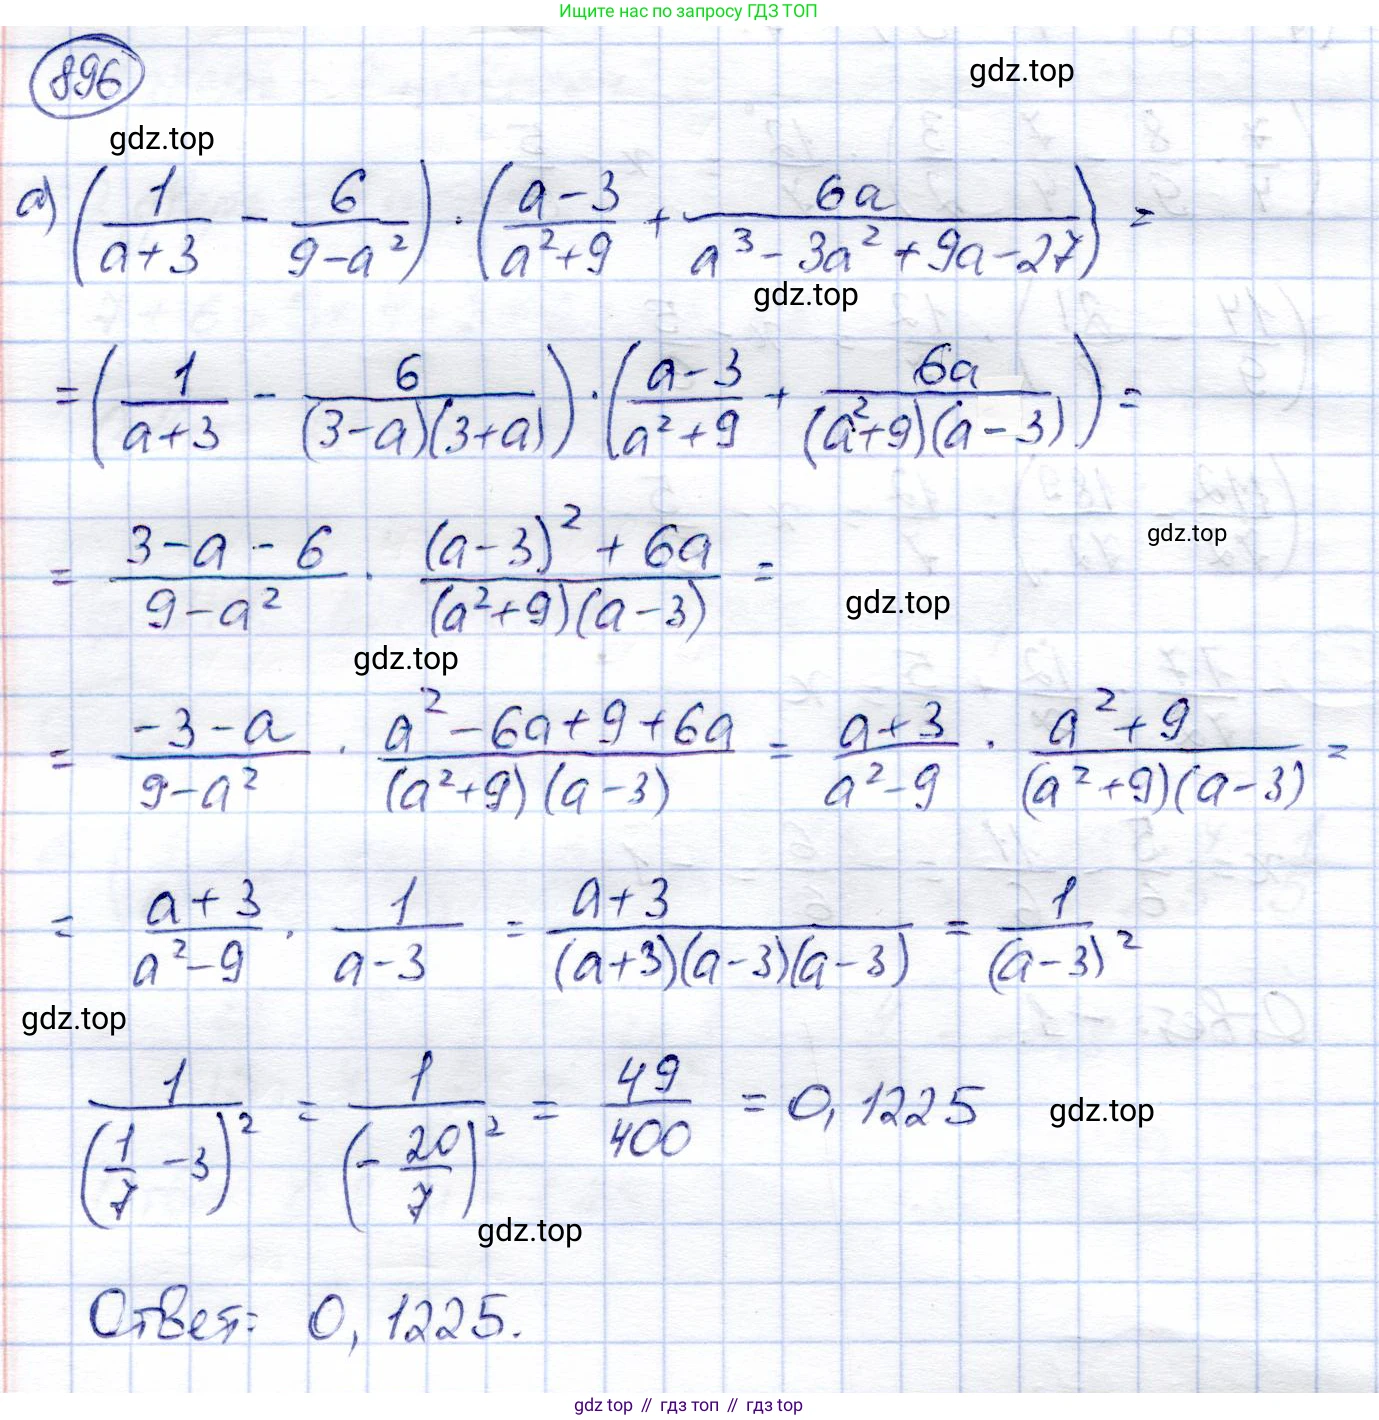 Ищите нас по запросу ГДЗ ТОП
896
gdz.top
gdz.top
а) (1/(a+3) - 6/(9-a²)) · ((a-3)/(a²+9) + 6a/(a³-3a²+9a-27)) =
gdz.top
= (1/(a+3) - 6/((3-a)(3+a))) · ((a-3)/(a²+9) + 6a/((a²+9)(a-3))) =
= (3-a-6)/(9-a²) · ((a-3)²+6a)/((a²+9)(a-3)) =
gdz.top
gdz.top
gdz.top
= (-3-a)/(9-a²) · (a²-6a+9+6a)/((a²+9)(a-3)) = (a+3)/(a²-9) · (a²+9)/((a²+9)(a-3)) =
= (a+3)/(a²-9) · 1/(a-3) = (a+3)/((a+3)(a-3)(a-3)) = 1/(a-3)²
gdz.top
1/(1/7 - 3)² = 1/(-20/7)² = 49/400 = 0,1225
gdz.top
gdz.top
Ответ: 0,1225.
gdz top // гдз топ // гдз top